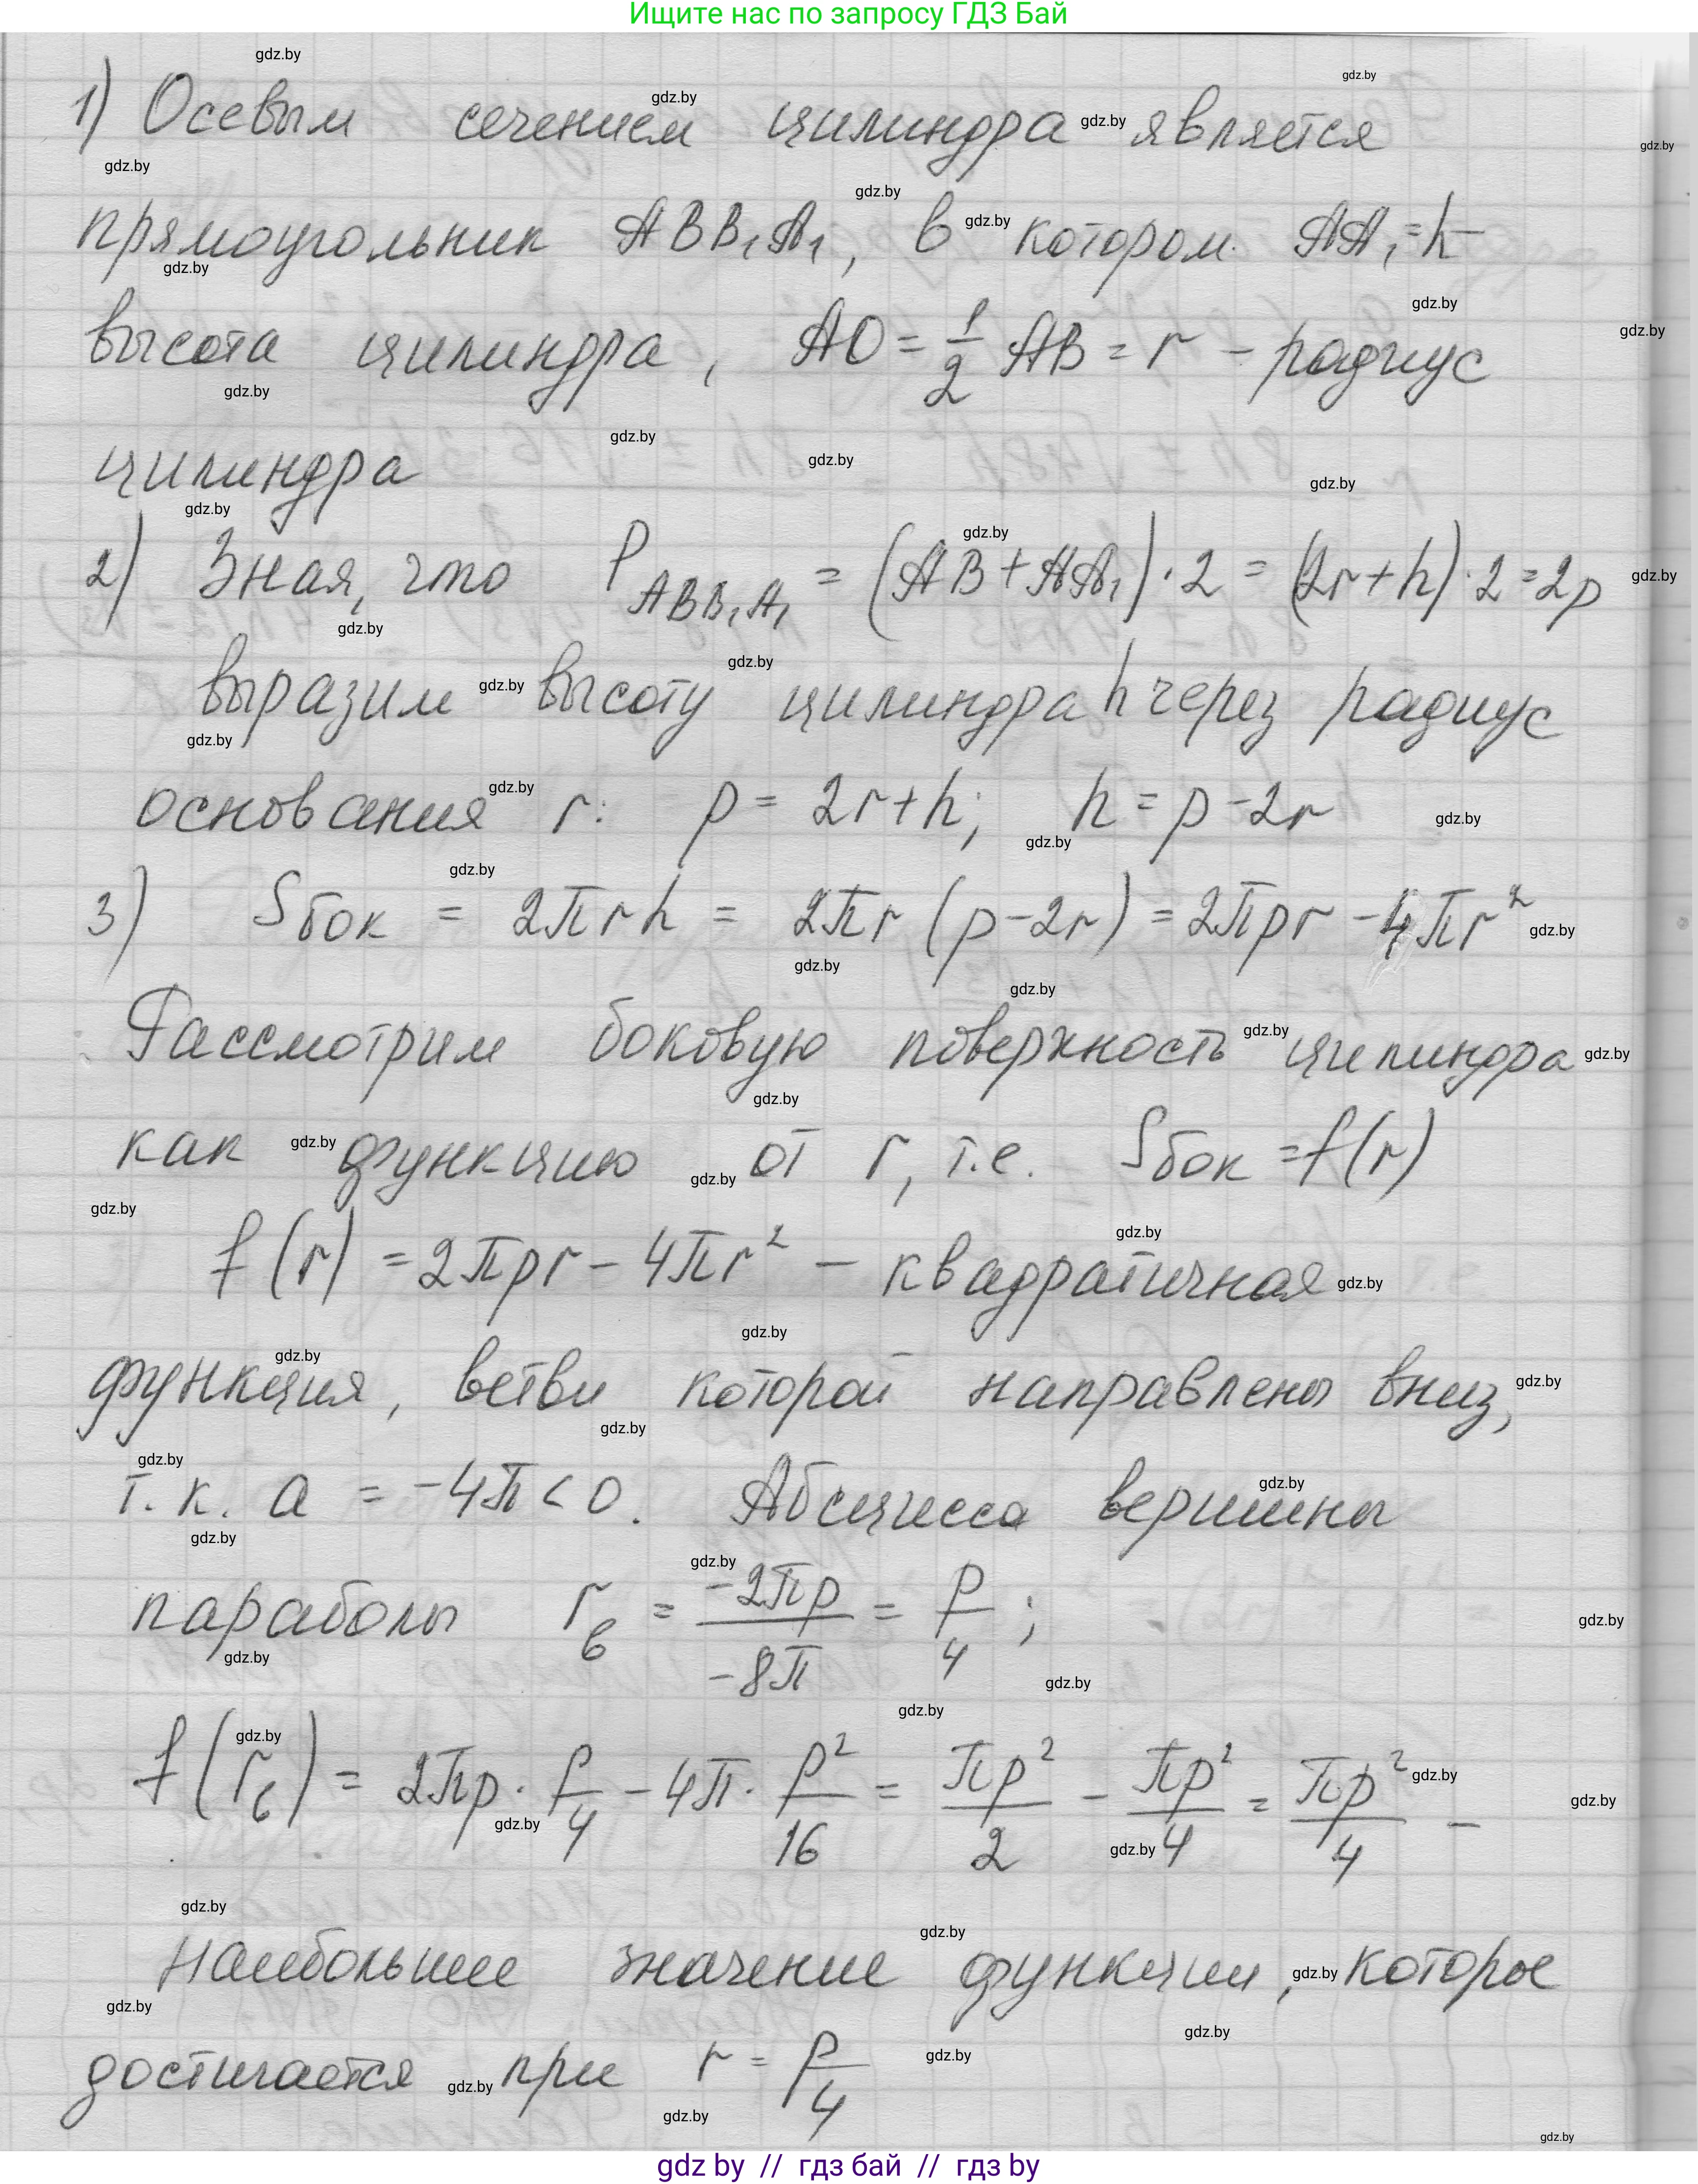 Ищите нас по запросу ГДЗ Бай
1) Осевым сечением цилиндра является
прямоугольник ABB₁A₁, в котором AA₁ = h –
высота цилиндра, AO = 1/2 AB = r – радиус
цилиндра
2) Зная, что P ABB₁A₁ = (AB + AA₁) · 2 = (2r + h) · 2 = 2p
выразим высоту цилиндра h через радиус
основания r: p = 2r + h; h = p - 2r
3) Sбок = 2πrh = 2πr (p - 2r) = 2πpr - 4πr²
Рассмотрим боковую поверхность цилиндра
как функцию от r, т.е. Sбок = f(r)
f(r) = 2πpr - 4πr² – квадратичная
функция, ветви которой направлены вниз,
т.к. a = -4π < 0. Абсцисса вершины
параболы rв = -2πp/-8π = p/4;
f(rв) = 2πp · p/4 - 4π · p²/16 = πp²/2 - πp²/4 = πp²/4 –
наибольшее значение функции, которое
достигается при r = p/4
gdz by // гдз бай // гдз by